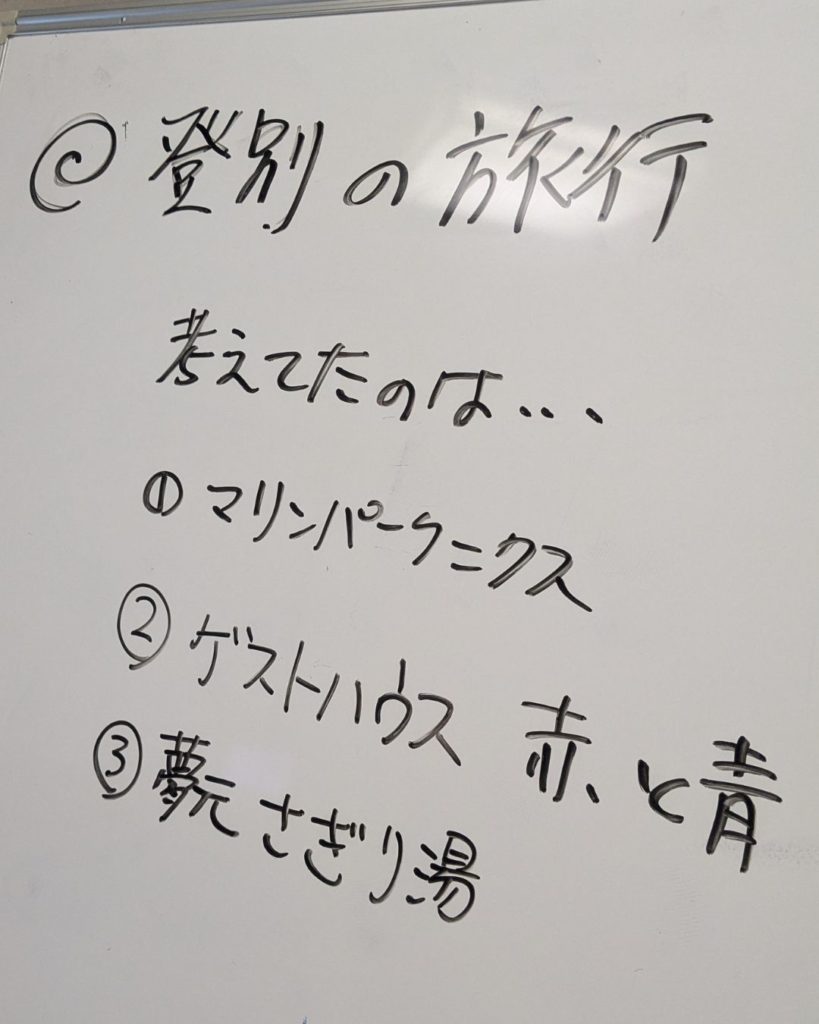 @ 登別の旅行
考えてたのは...
① マリンパークニクス
② ゲストハウス 赤と青
③ 夢元さぎり湯